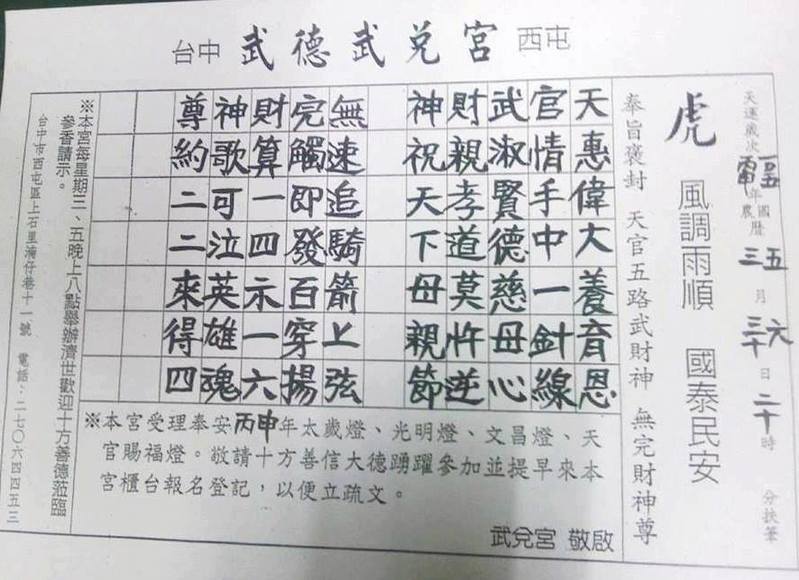 台中 武德武兌宮 西屯
天運歲次 年 農國曆 三五 月 日 二十 時 分扶筆
虎 風調雨順 國泰民安
奉旨褒封 天官五路武財神 無完財神尊
天惠偉大養育恩
官情手中一針線
武淑賢德慈母心
財親孝道莫忤逆
神祝天下母親節
無速追騎箭上弦
完觸即發百穿揚
財算一四示一六
神歌可泣英雄魂
尊約二二來得四
※本宮受理奉安丙申年太歲燈、光明燈、文昌燈、天
官賜福燈。敬請十方善信大德踴躍參加並提早來本
宮櫃台報名登記,以便立疏文。
武兌宮 敬啟
※本宮每星期三、五晚上八點舉辦濟世歡迎十方善德蒞臨
參香請示。
台中市西屯區上石里湳仔巷十一號 電話:二七〇六四四五三